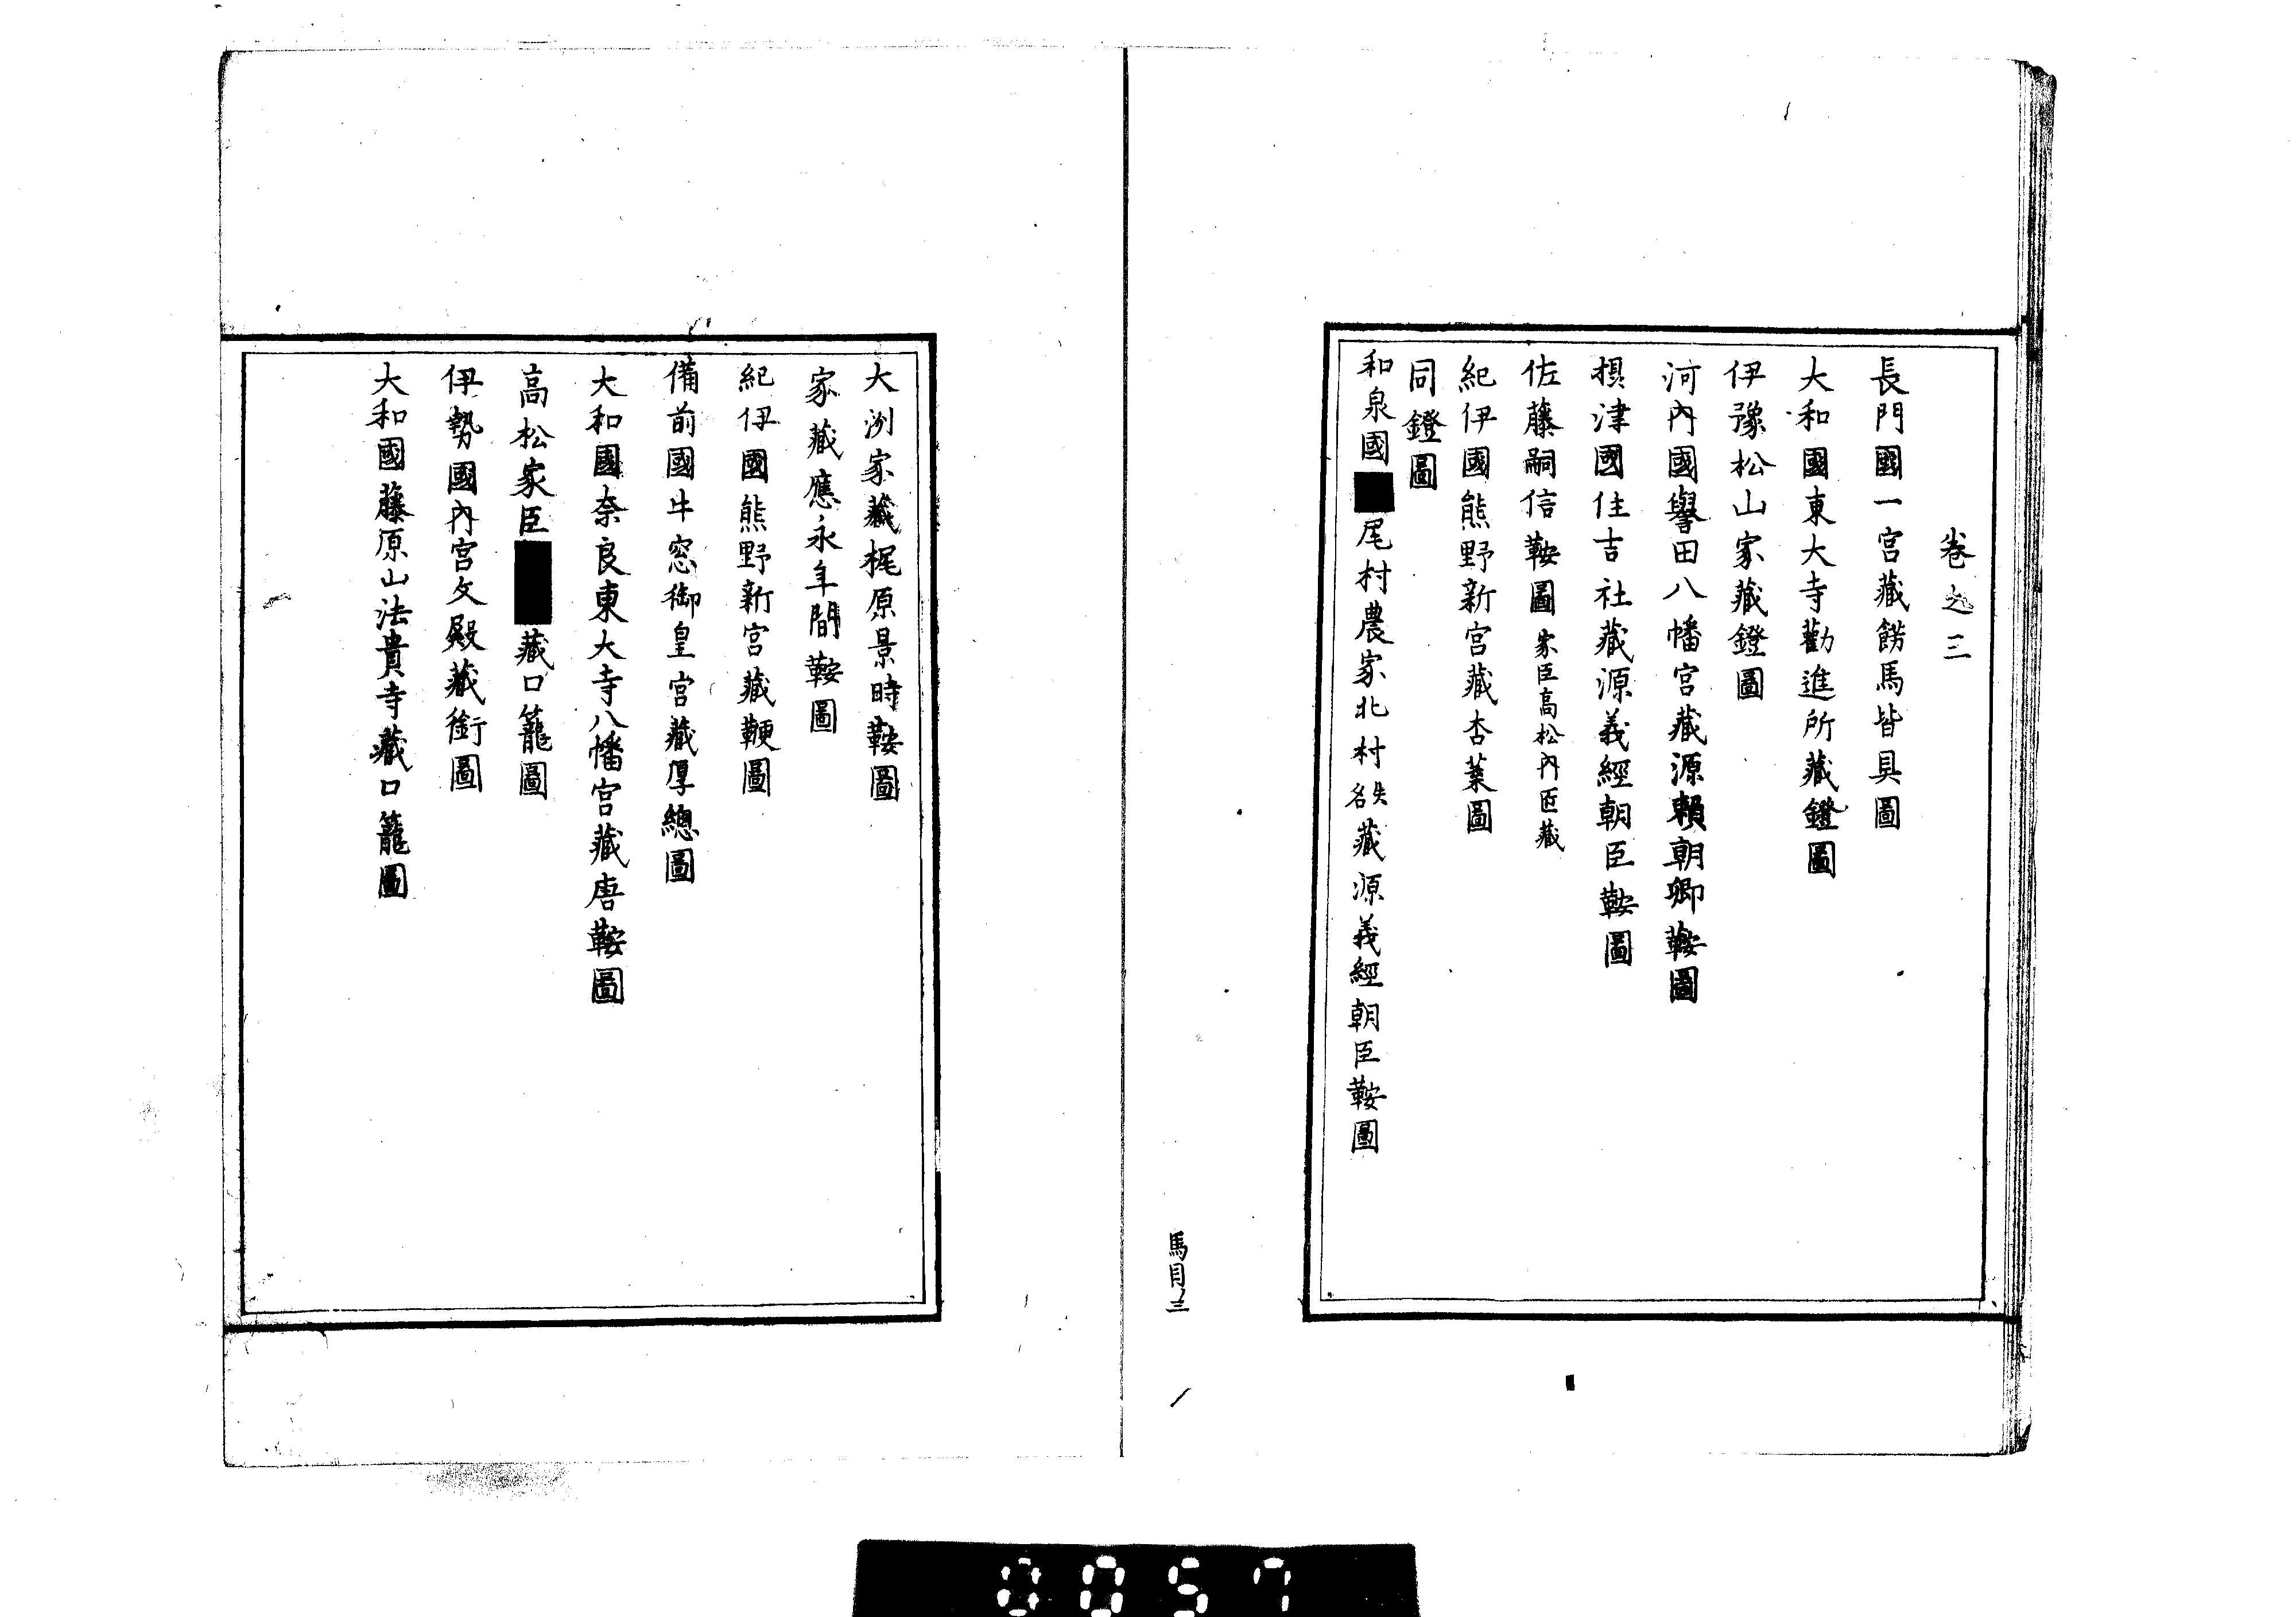 卷之三
長門國一宮藏餝馬皆具圖
大和國東大寺勸進所藏鐙圖
伊豫松山家藏鐙圖
河內國譽田八幡宮藏源賴朝卿鞍圖
摂津國住吉社藏源義經朝臣鞍圖
佐藤嗣信鞍圖 家臣高松內匠藏
紀伊國熊野新宮藏杏葉圖
同鐙圖
和泉國 尾村農家北村 失名 藏源義經朝臣鞍圖
馬目三
大洲家藏梶原景時鞍圖
家藏應永年間鞍圖
紀伊國熊野新宮藏鞭圖
備前國牛窓御皇宮藏厚總圖
大和國奈良東大寺八幡宮藏唐鞍圖
高松家臣 藏口籠圖
伊勢國內宮文殿藏銜圖
大和國藤原山法貴寺藏口籠圖
0057